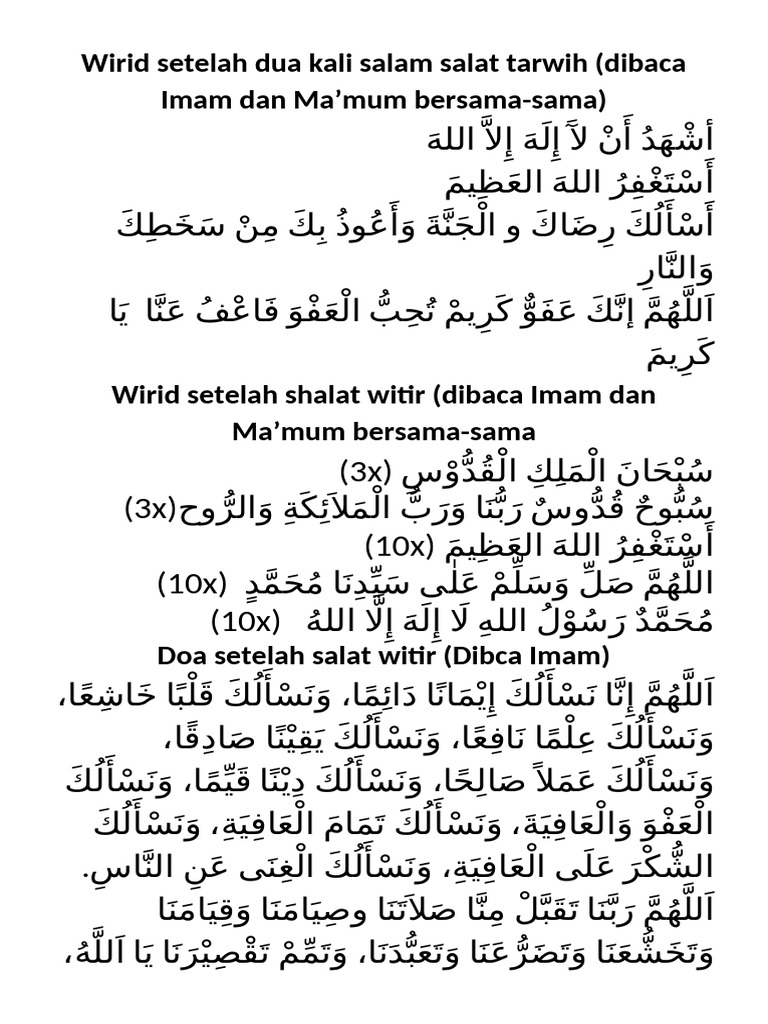 Wirid setelah dua kali salam salat tarwih (dibaca
Imam dan Ma’mum bersama-sama)
أشْهَدُ أَنْ لآَ إِلَهَ إِلاَّ اللهَ
أَسْتَغْفِرُ اللهَ العَظِيمَ
أَسْأَلُكَ رِضَاكَ و الْجَنَّةَ وَأَعُوذُ بِكَ مِنْ سَخَطِكَ
وَالنَّارِ
اَللَّهُمَّ إنَّكَ عَفَوٌّ كَرِيمْ تُحِبُّ الْعَفْوَ فَاعْفُ عَنَّا يَا
كَرِيمَ
Wirid setelah shalat witir (dibaca Imam dan
Ma’mum bersama-sama
سُبْحَانَ الْمَلِكِ الْقُدُّوْسِ (3x)
سُبُّوحٌ قُدُّوسٌ رَبُّنَا وَرَبُّ الْمَلاَئِكَةِ وَالرُّوح(3x)
أَسْتَغْفِرُ اللهَ العَظِيمَ (10x)
اللَّهُمَّ صَلِّ وَسَلِّمْ عَلٰى سَيِّدِنَا مُحَمَّدٍ (10x)
مُحَمَّدٌ رَسُوْلُ اللهِ لَا إِلَهَ إِلَّا اللهُ (10x)
Doa setelah salat witir (Dibca Imam)
اَللَّهُمَّ إِنَّا نَسْأَلُكَ إِيْمَانًا دَائِمًا، وَنَسْأَلُكَ قَلْبًا خَاشِعًا،
وَنَسْأَلُكَ عِلْمًا نَافِعًا، وَنَسْأَلُكَ يَقِيْنًا صَادِقًا،
وَنَسْأَلُكَ عَمَلاً صَالِحًا، وَنَسْأَلُكَ دِيْنًا قَيِّمًا، وَنَسْأَلُكَ
الْعَفْوَ وَالْعَافِيَةَ، وَنَسْأَلُكَ تَمَامَ الْعَافِيَةِ، وَنَسْأَلُكَ
الشُّكْرَ عَلَى الْعَافِيَةِ، وَنَسْأَلُكَ الْغِنَى عَنِ النَّاسِ.
اَللَّهُمَّ رَبَّنَا تَقَبَّلْ مِنَّا صَلاَتَنَا وصِيَامَنَا وَقِيَامَنَا
وَتَخَشُّعَنَا وَتَضَرُّعَنَا وَتَعَبُّدَنَا، وَتَمِّمْ تَقْصِيْرَنَا يَا اَللَّهُ،